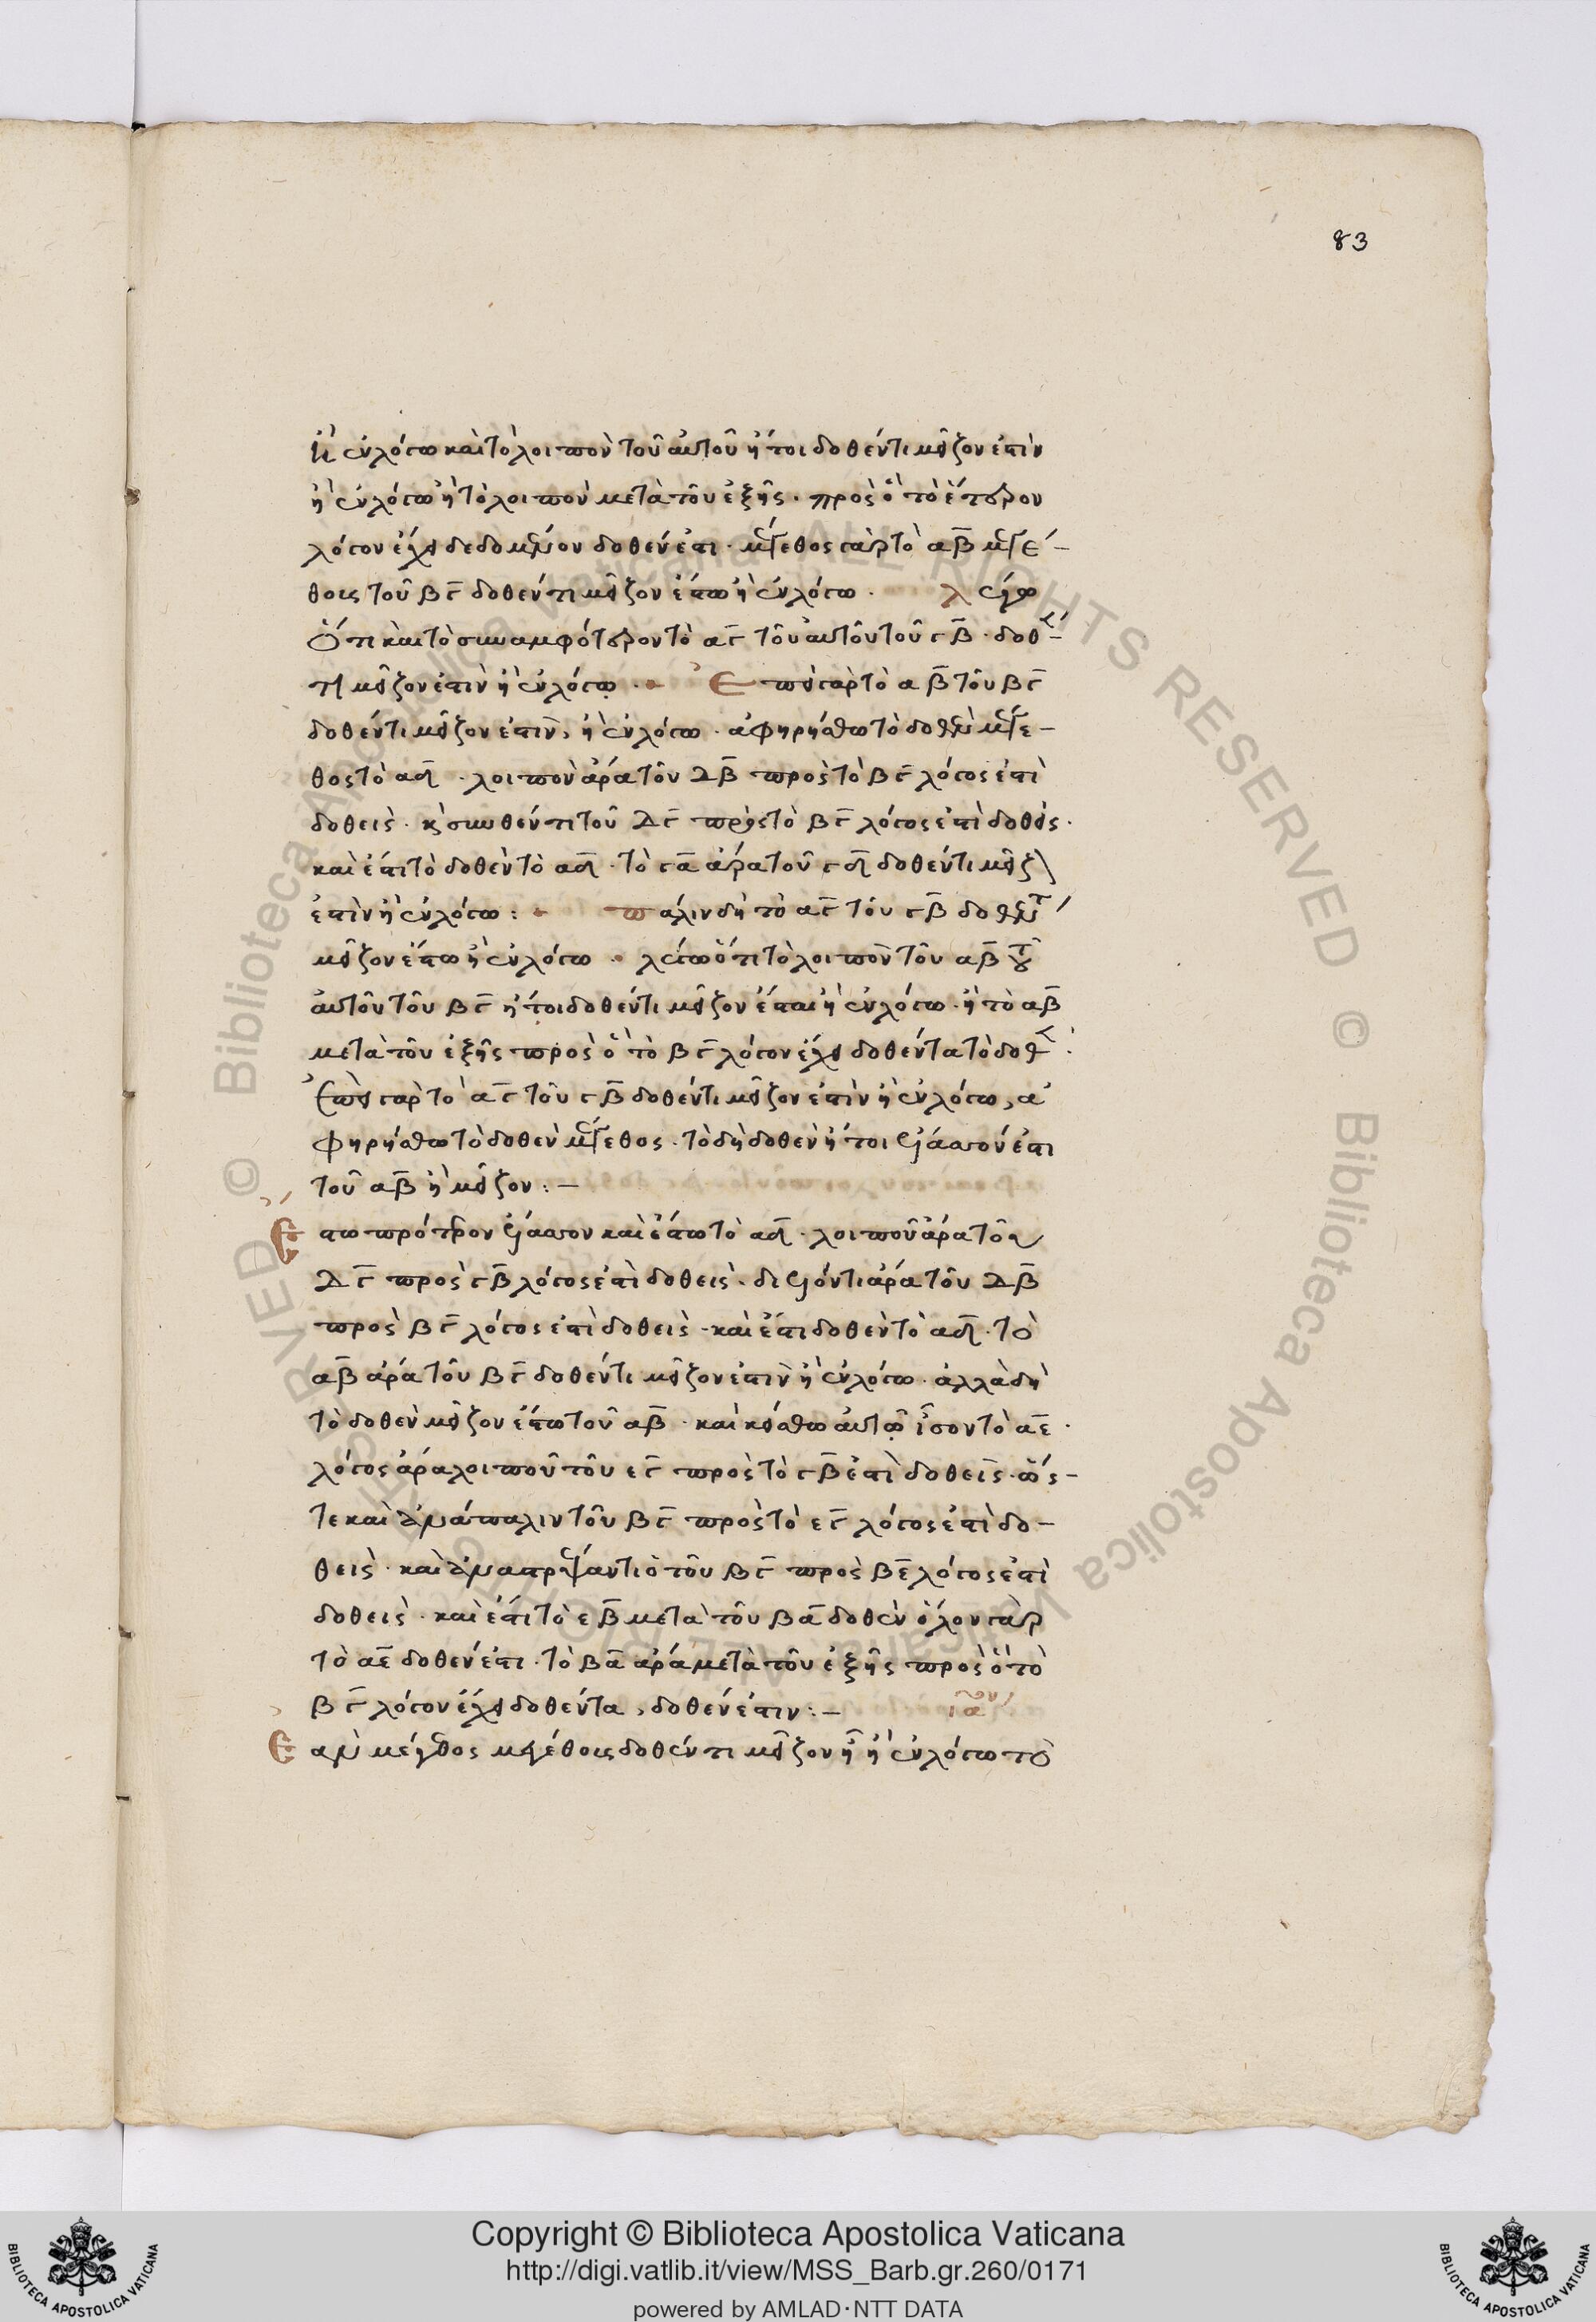 83
ἢ ἐν λόγω καὶ τὸ λοιπὸν τοῦ αὐτοῦ ἤτοι δοθέντι μεῖζον ἐστὶν
ἢ ἐν λόγω ἢ τὸ λοιπὸν μετὰ τοῦ ἑξῆς · πρὸς ὃ τὸ ἕτερον
λόγον ἔχει δεδομένον δοθέν ἐστι · μέγεθος γὰρ τὸ αβ μεγέ–
θους τοῦ βγ δοθέντι μεῖζον ἔστω ἢ ἐν λόγω · λέγω
Ὅτι καὶ τὸ συναμφότερον τὸ αγ τοῦ αὐτοῦ τοῦ γβ · δοθέν–
τι μεῖζον ἐστὶν ἢ ἐν λόγω · Ἐπεὶ γὰρ τὸ αβ τοῦ βγ
δοθέντι μεῖζον ἐστὶν, ἢ ἐν λόγω · ἀφηρήσθω τὸ δοθὲν μέγε–
θος τὸ αδ · λοιποῦ ἄρα τοῦ δβ πρὸς τὸ βγ λόγος ἐστὶ
δοθεὶς · κ συνθέντι τοῦ δγ πρὸς τὸ βγ λόγος ἐστὶ δοθείς ·
καὶ ἔστι τὸ δοθὲν τὸ αδ · τὸ γα ἄρα τοῦ γδ δοθέντι μεῖζ
ἐστὶν ἢ ἐν λόγω : πάλιν δὴ τὸ αγ τοῦ γβ δοθέντ
μεῖζον ἔστω ἢ ἐν λόγω · λέγω ὅτι τὸ λοιπὸν τοῦ αβ τοῦ
αὐτοῦ τοῦ βγ ἤτοι δοθέντι μεῖζον ἔσται ἢ ἐν λόγω · ἢ τὸ αβ
μετὰ τοῦ ἑξῆς πρὸς ὃ τὸ βγ λόγον ἔχει δοθέντα τὸ δοθέν :
Ἐπεὶ γὰρ τὸ αγ τοῦ γβ δοθέντι μεῖζον ἐστὶν ἢ ἐν λόγω, ἀ
φηρήσθω τὸ δοθὲν μέγεθος · τὸ δὴ δοθὲν ἤτοι ἔλαττόν ἐστι
τοῦ αβ ἢ μεῖζον : –
Ἔστω πρότερον ἔλαττον καὶ ἔστω τὸ αδ · λοιποῦ ἄρα τοῦ
δγ πρὸς γβ λόγος ἐστὶ δοθεὶς · διελόντι ἄρα τοῦ δβ
πρὸς βγ λόγος ἐστὶ δοθεὶς · καὶ ἔστι δοθὲν τὸ αδ · τὸ
αβ ἄρα τοῦ βγ δοθέντι μεῖζον ἐστὶν ἢ ἐν λόγω · ἀλλὰ δὴ
τὸ δοθὲν μεῖζον ἔστω τοῦ αβ · καὶ κείσθω αὐτῷ ἴσον τὸ αε ·
λόγος ἄρα λοιποῦ τοῦ εγ πρὸς τὸ γβ ἐστὶ δοθεὶς · ὥσ–
τε καὶ ἀνάπαλιν τοῦ βγ πρὸς τὸ εγ λόγος ἐστὶ δο–
θεὶς · καὶ ἀναστρέψαντι ὁ τοῦ βγ πρὸς βε λόγος ἐστὶ
δοθεὶς · καὶ ἔστι τὸ εβ μετὰ τοῦ βα δοθὲν ὅλον γὰρ
τὸ αε δοθέν ἐστι · τὸ βα ἄρα μετὰ τοῦ ἑξῆς πρὸς ὃ τὸ
βγ λόγον ἔχει δοθέντα, δοθέν ἐστιν : – ια
Ἐὰν μέγεθος μεγέθους δοθέντι μεῖζον ἦ ἢ ἐν λόγω τὸ
Copyright © Biblioteca Apostolica Vaticana
http://digi.vatlib.it/view/MSS_Barb.gr.260/0171
powered by AMLAD·NTT DATA